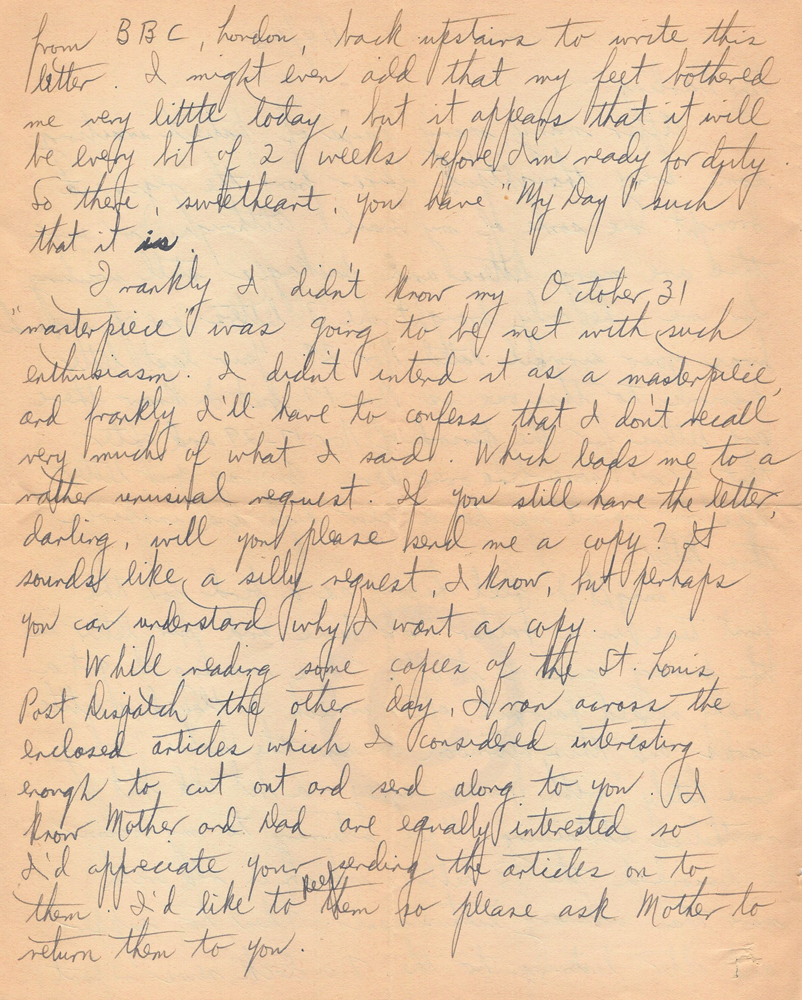 from BBC, London, back upstairs to write this
letter. I might even add that my feet bothered
me very little today, but it appears that it will
be every bit of 2 weeks before I'm ready for duty.
So there, sweetheart, you have "My Day" such
that it is.
Frankly I didn't know my October 31
"masterpiece" was going to be met with such
enthusiasm. I didn't intend it as a masterpiece,
and frankly I'll have to confess that I don't recall
very much of what I said. Which leads me to a
rather unusual request. If you still have the letter,
darling, will you please send me a copy? It
sounds like a silly request, I know, but perhaps
you can understand why I want a copy.
While reading some copies of the St. Louis
Post Dispatch the other day, I ran across the
enclosed articles which I considered interesting
enough to cut out and send along to you. I
know Mother and Dad are equally interested so
I'd appreciate your sending the articles on to
them. I'd like to keep them so please ask Mother to
return them to you.